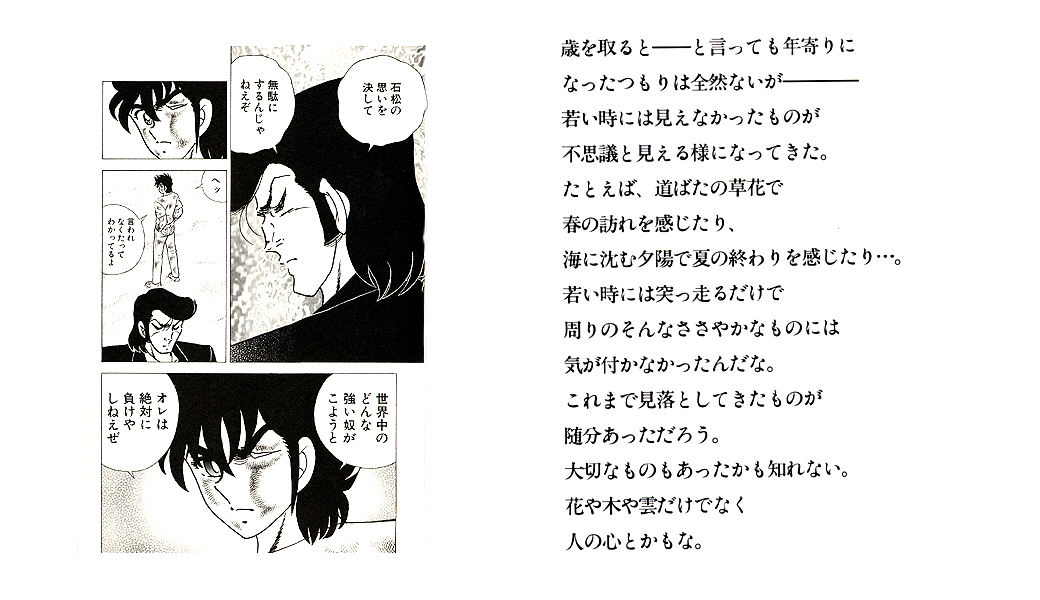 石松の
思いを
決して
無駄に
するんじゃ
ねえぞ
ヘッ
言われ
なくたって
わかってるよ
世界中の
どんな
強い奴が
こようと
オレは
絶対に
負けや
しねえぜ
歳を取ると――と言っても年寄りに
なったつもりは全然ないが――――
若い時には見えなかったものが
不思議と見える様になってきた。
たとえば、道ばたの草花で
春の訪れを感じたり、
海に沈む夕陽で夏の終わりを感じたり…。
若い時には突っ走るだけで
周りのそんなささやかなものには
気が付かなかったんだな。
これまで見落としてきたものが
随分あっただろう。
大切なものもあったかも知れない。
花や木や雲だけでなく
人の心とかもな。